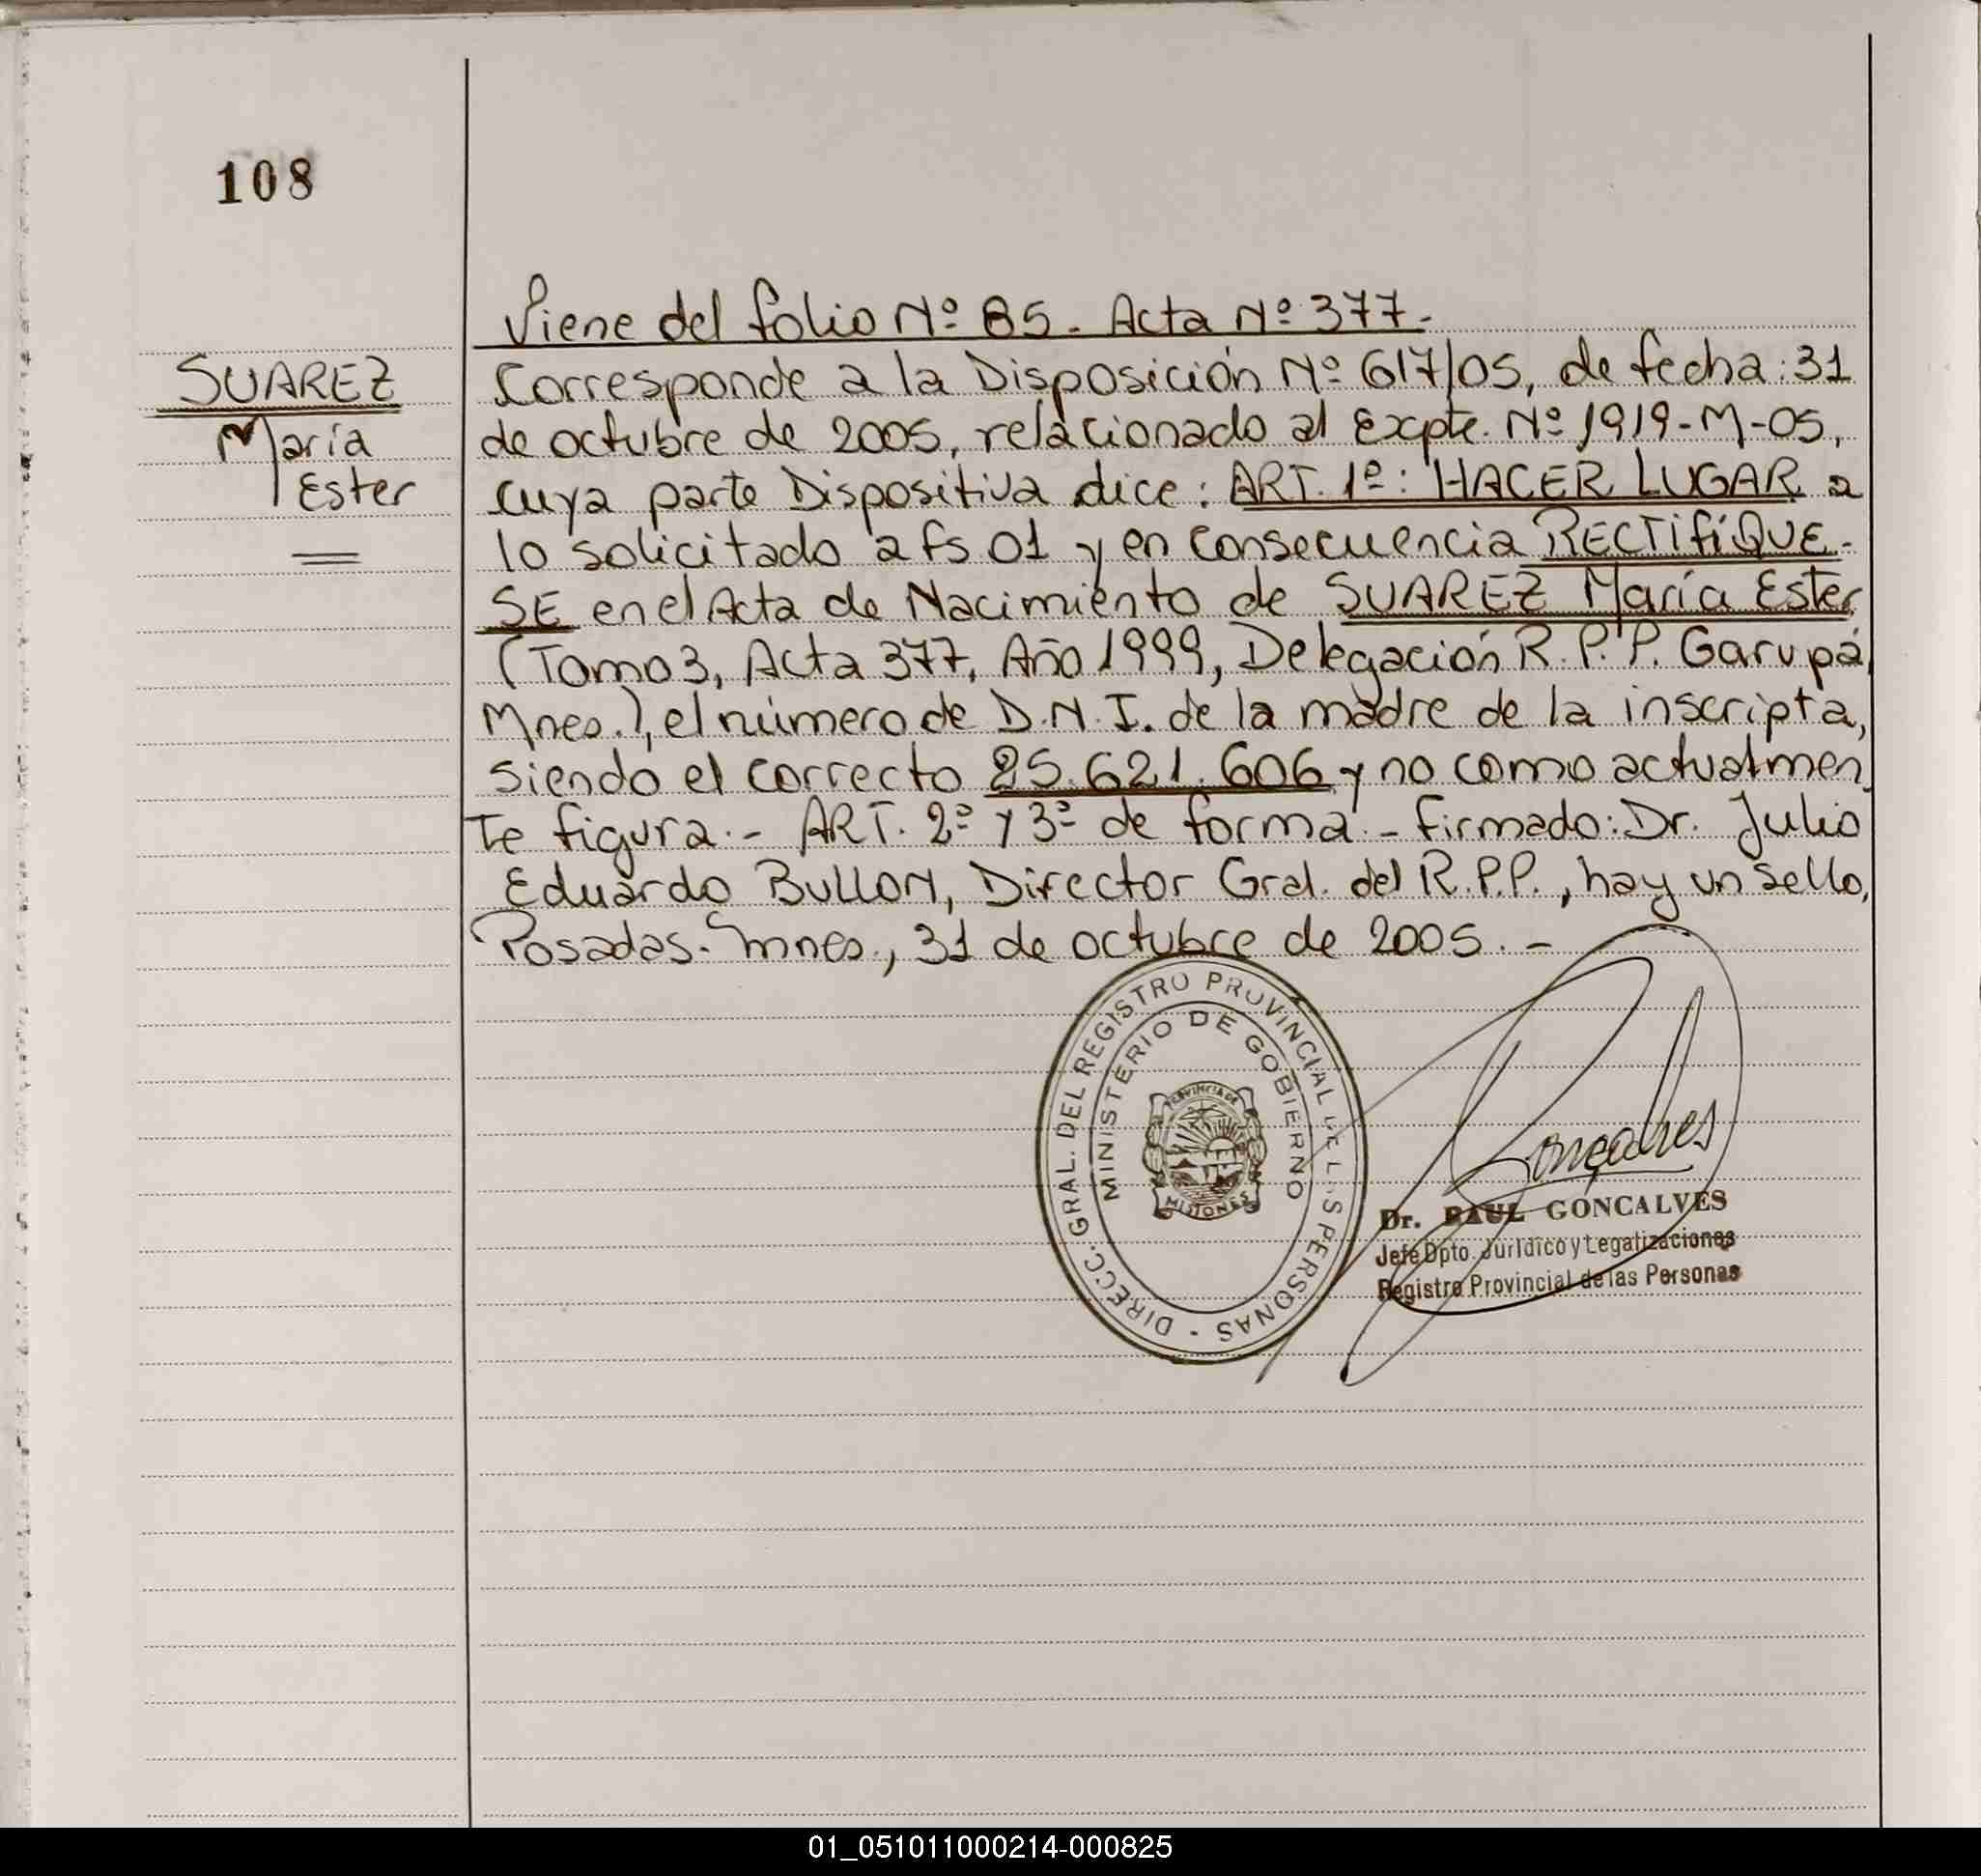 108
SUAREZ
María
Ester
Viene del folio Nº 85. Acta Nº 377.-
Corresponde a la Disposición Nº 617/05, de fecha: 31
de octubre de 2005, relacionado al Expte. Nº 1919-M-05,
cuya parte Dispositiva dice: ART. 1º: HACER LUGAR a
lo solicitado a fs 01 y en consecuencia RECTIFÍQUE-
SE en el Acta de Nacimiento de SUAREZ María Ester
(Tomo 3, Acta 377, Año 1999, Delegación R.P.P. Garupá,
Mnes.), el número de D.N.I. de la madre de la inscripta,
siendo el correcto 25.621.606 y no como actualmen
te figura.- ART. 2º y 3º de forma.- Firmado: Dr. Julio
Eduardo BULLON, Director Gral. del R.P.P., hay un sello,
Posadas-Mnes., 31 de octubre de 2005.-
DIRECC. GRAL. DEL REGISTRO PROVINCIAL DE LAS PERSONAS -
MINISTERIO DE GOBIERNO
PROVINCIA DE
MISIONES
Goncalves
Dr. RAUL GONCALVES
Jefe Dpto. Jurídico y Legalizaciones
Registro Provincial de las Personas
01_051011000214-000825